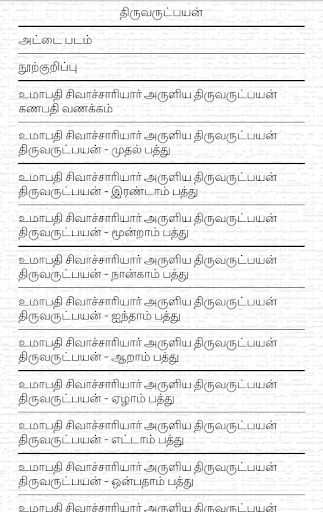 திருவருட்பயன்
அட்டை படம்
நூற்குறிப்பு
உமாபதி சிவாச்சாரியார் அருளிய திருவருட்பயன்
கணபதி வணக்கம்
உமாபதி சிவாச்சாரியார் அருளிய திருவருட்பயன்
திருவருட்பயன் - முதல் பத்து
உமாபதி சிவாச்சாரியார் அருளிய திருவருட்பயன்
திருவருட்பயன் - இரண்டாம் பத்து
உமாபதி சிவாச்சாரியார் அருளிய திருவருட்பயன்
திருவருட்பயன் - மூன்றாம் பத்து
உமாபதி சிவாச்சாரியார் அருளிய திருவருட்பயன்
திருவருட்பயன் - நான்காம் பத்து
உமாபதி சிவாச்சாரியார் அருளிய திருவருட்பயன்
திருவருட்பயன் - ஐந்தாம் பத்து
உமாபதி சிவாச்சாரியார் அருளிய திருவருட்பயன்
திருவருட்பயன் - ஆறாம் பத்து
உமாபதி சிவாச்சாரியார் அருளிய திருவருட்பயன்
திருவருட்பயன் - ஏழாம் பத்து
உமாபதி சிவாச்சாரியார் அருளிய திருவருட்பயன்
திருவருட்பயன் - எட்டாம் பத்து
உமாபதி சிவாச்சாரியார் அருளிய திருவருட்பயன்
திருவருட்பயன் - ஒன்பதாம் பத்து
உமாபதி சிவாச்சாரியார் அருளிய திருவருட்பயன்